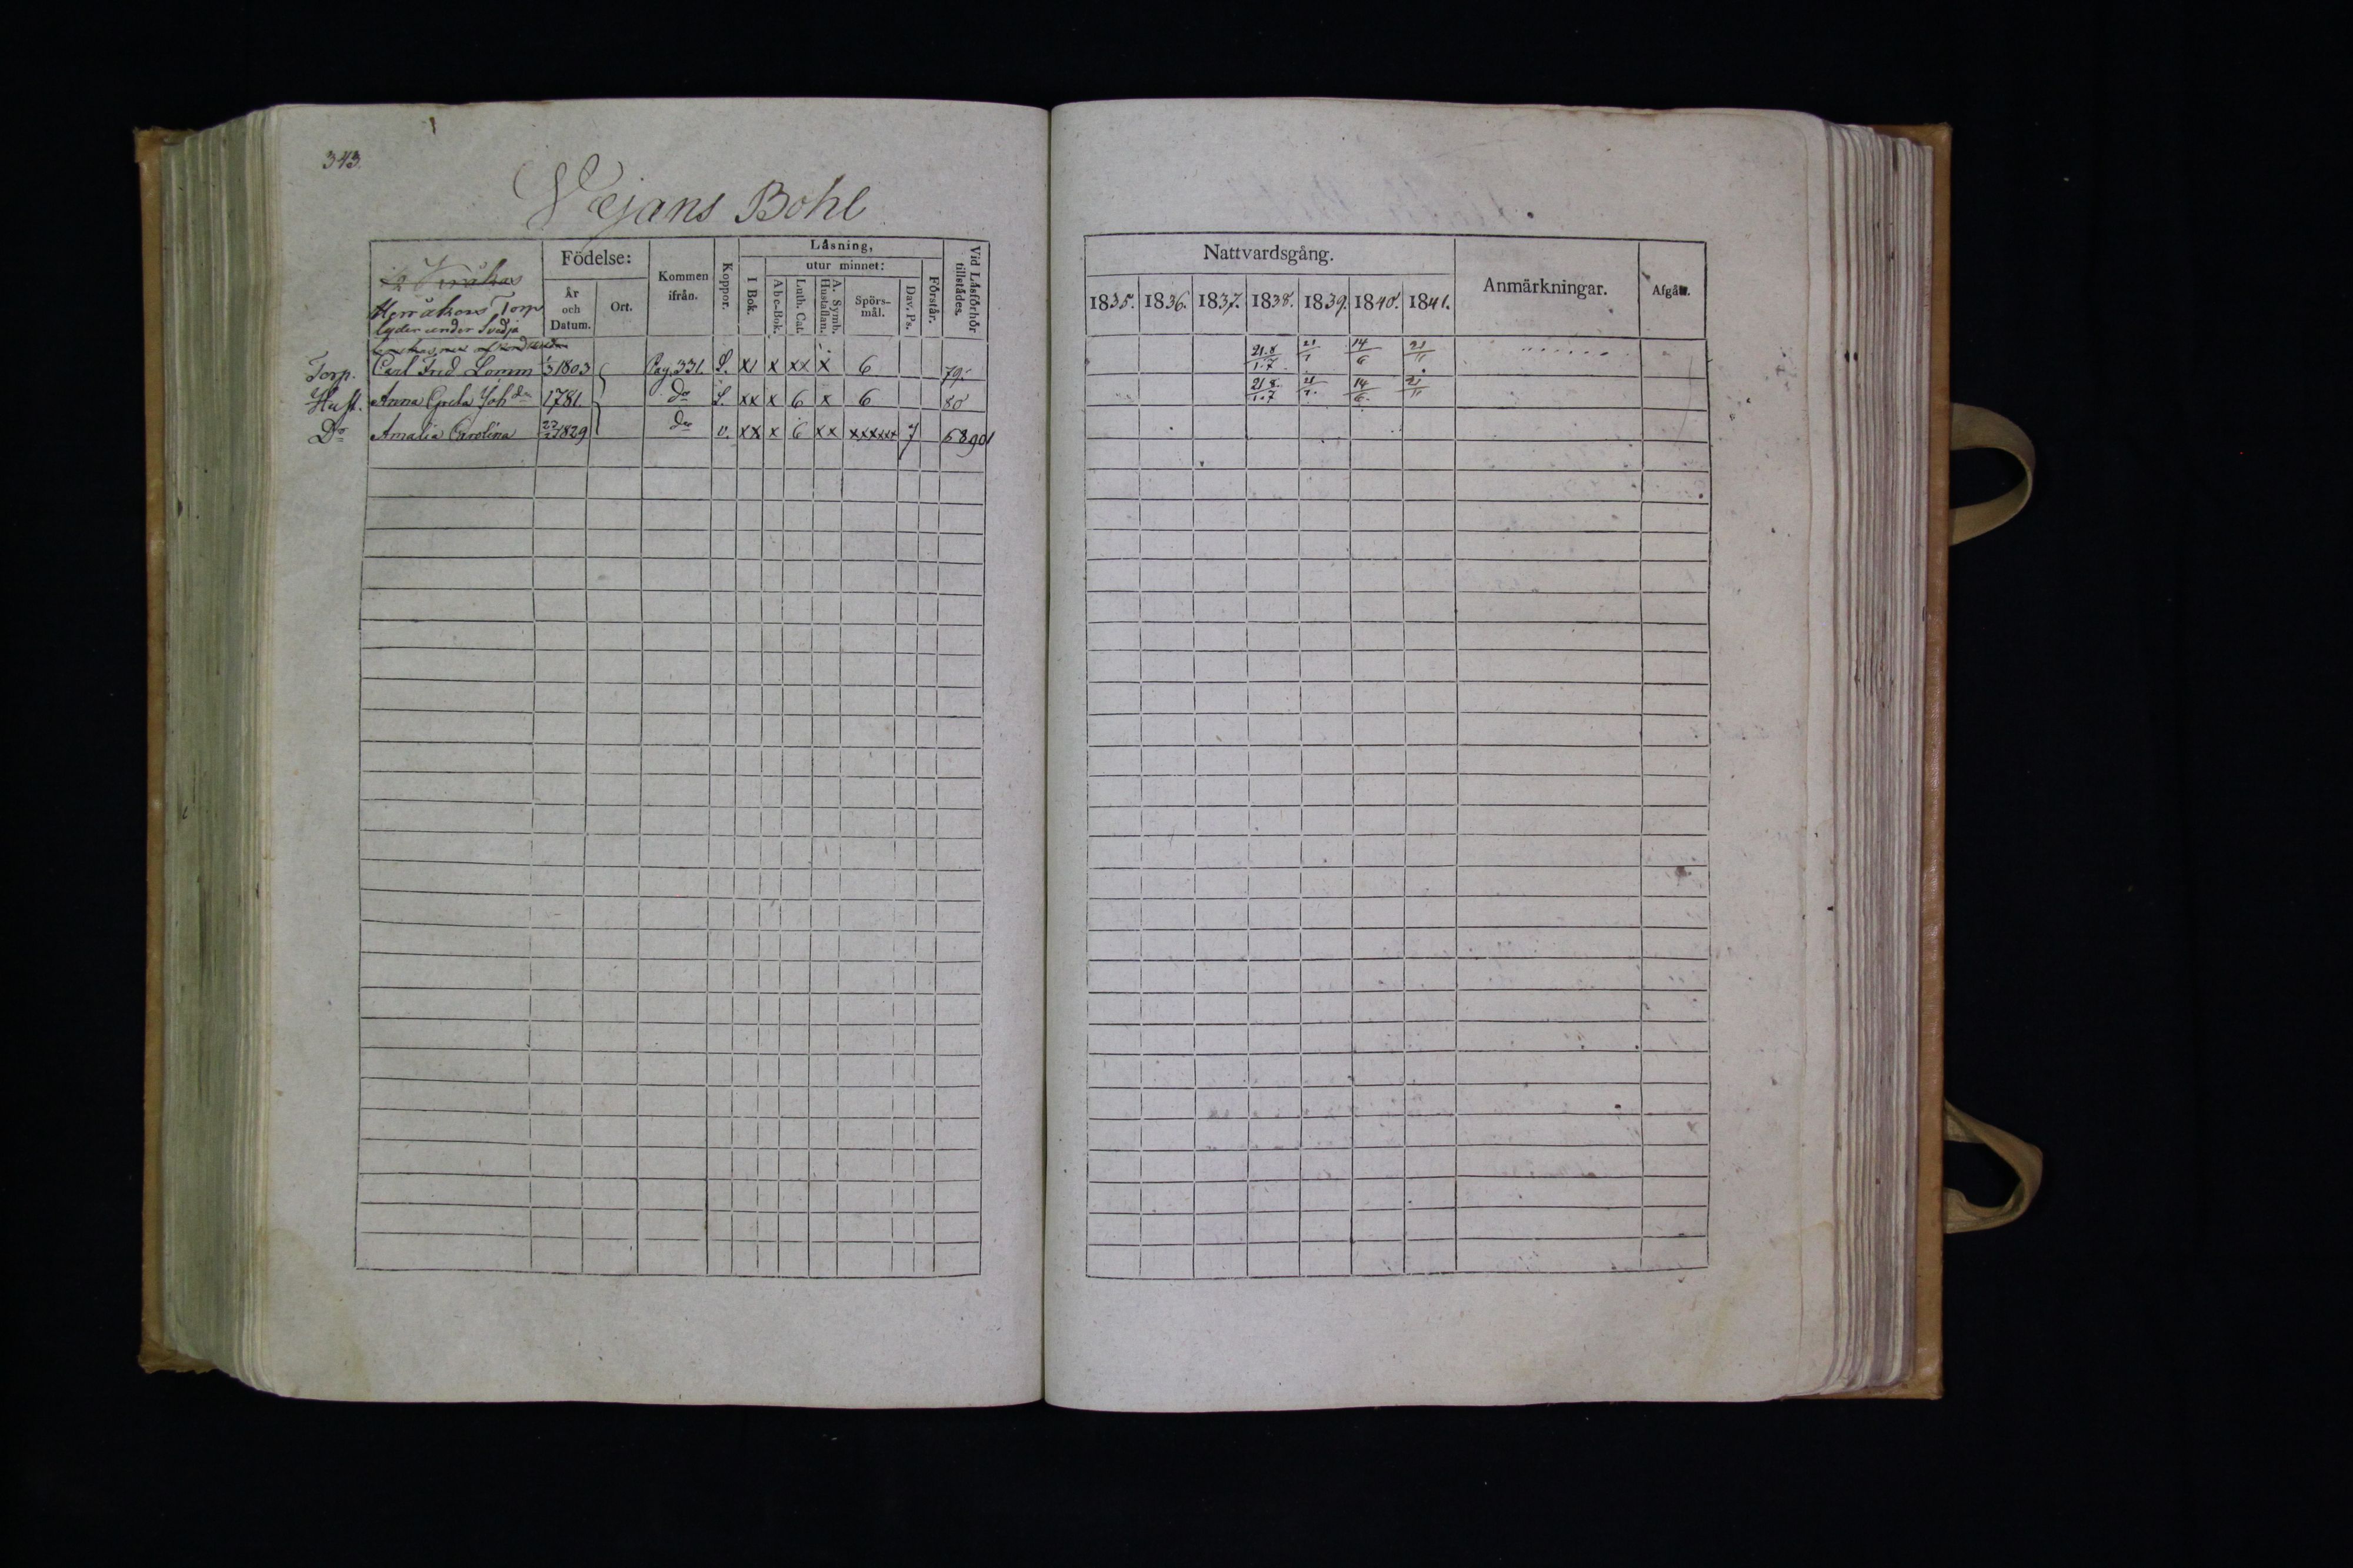 343.
Vejans Bohl
Födelse:
År och Datum.
Ort.
Kommen ifrån.
Koppor.
Läsning,
I Bok.
utur minnet:
Abc-Bok.
Luth. Cat.
A. Symb. Hustaflan.
Spörsmål.
Dav. Ps.
Förstår.
Vid Läsförhör tillstådes.
Torp
lyder under Svedja
Torp. Carl Fred Lomm 1803 Pag. 331. S. x x xx x 6 79.
Hust. Anna Greta Joh dr 1781. do S. xx x 6 x 6 80
Do Amalia Carolina 1829 do v. xx x 6 xx xxxxxx 7 58901
Nattvardsgång.
Anmärkningar.
Afgått.
1835. 1836. 1837. 1838. 1839. 1840. 1841.
21.8/1.7 21/1 14/6 21/11
21.8/1.7 21/1 14/6 21/11